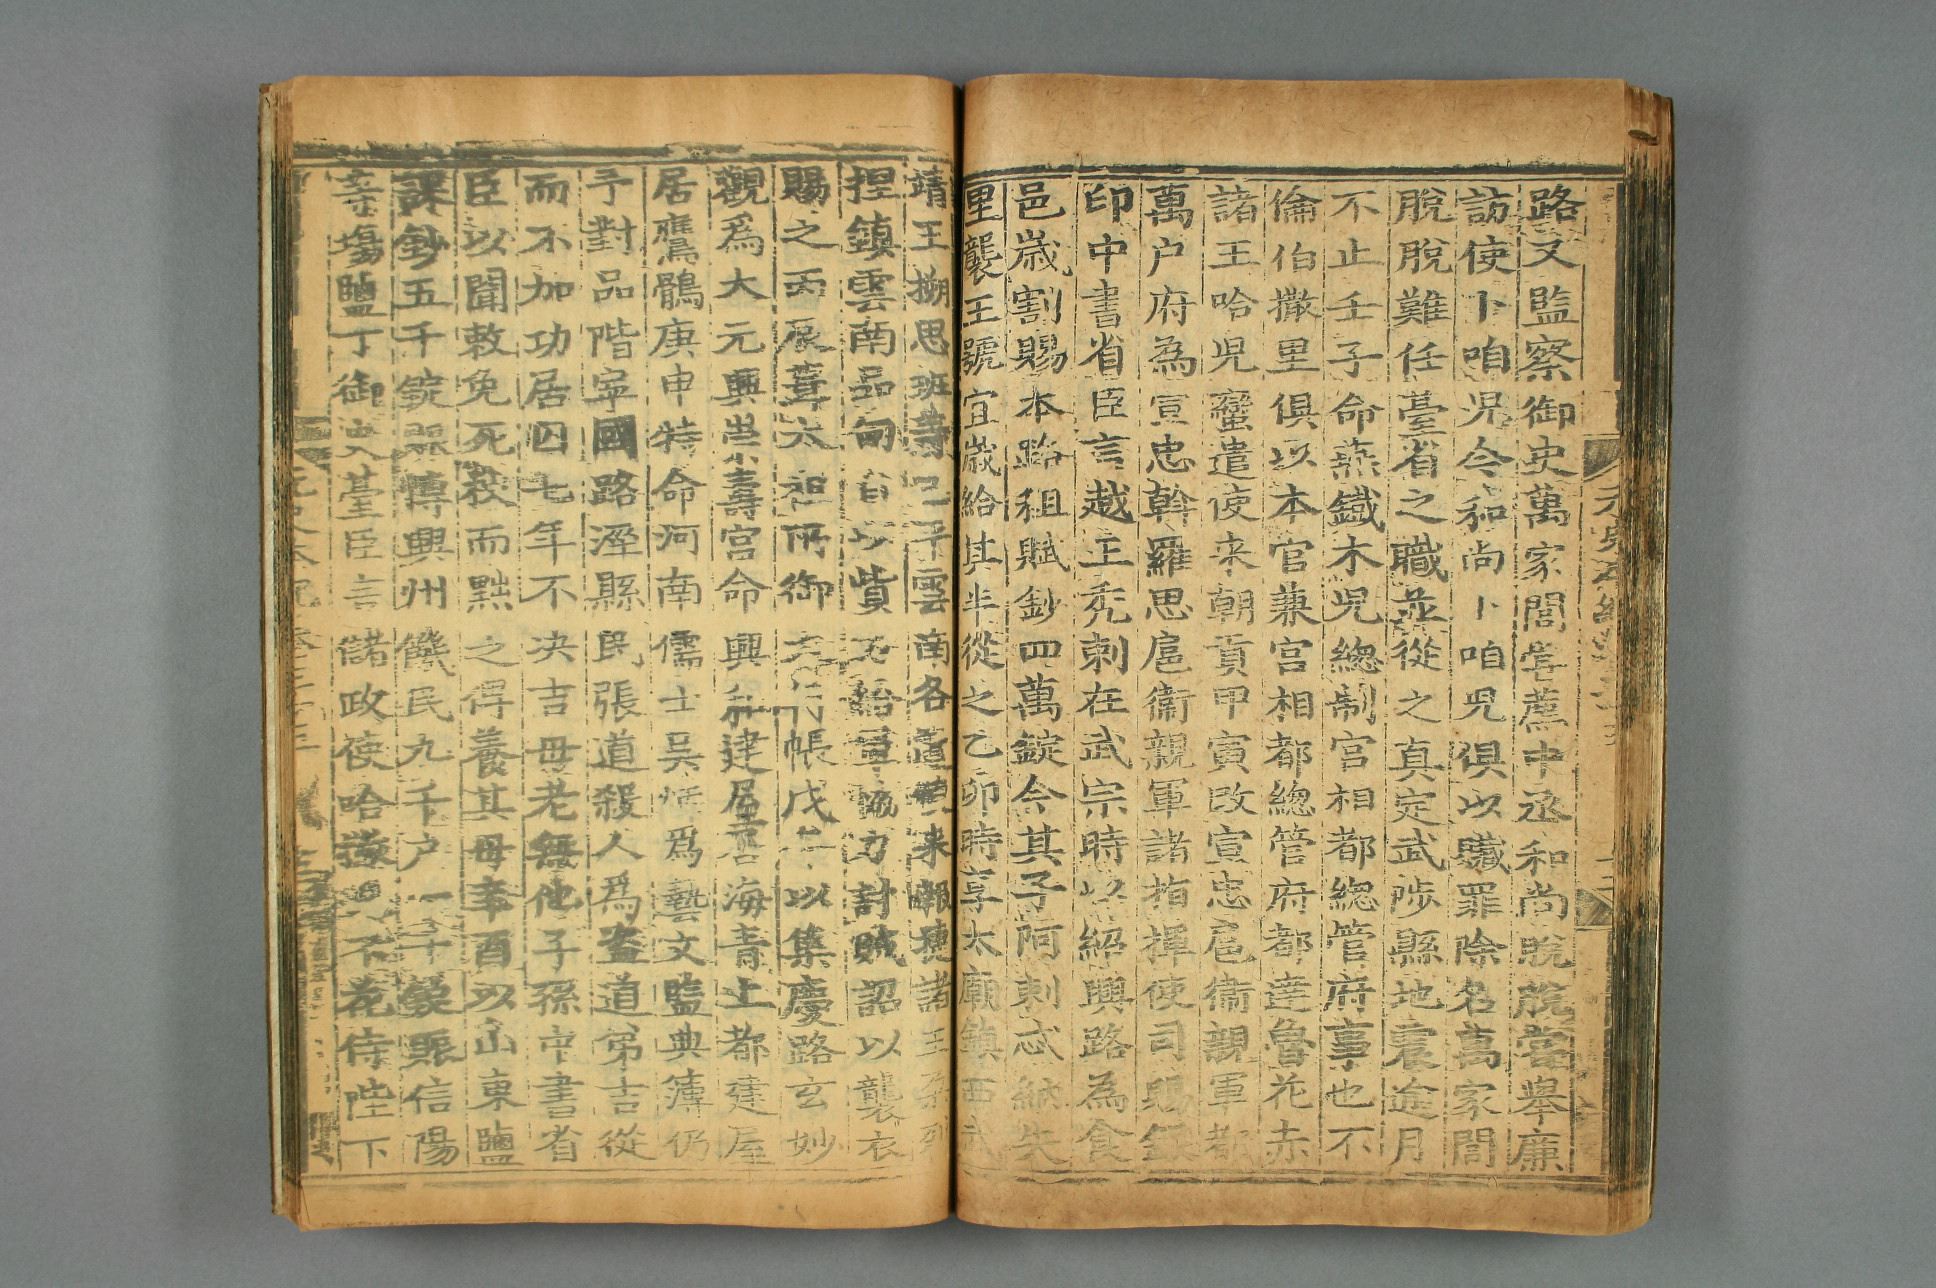 路又監察御史萬家閭嘗薦中丞和尚脫脫嘗舉廉
訪使卜咱児今和尚卜咱児俱以贓罪除名萬家閭
脫脫難任臺省之職並從之真定武陟縣地震逾月
不止壬子命燕鐵木児總制宮相都總管府事也不
倫伯撒里俱以本官兼宮相都總管府都達魯花赤
諸王哈児蠻遣使来朝貢甲寅改宣忠扈衞親軍都
萬户府為宣忠斡羅思扈衞親軍諸指揮使司賜銀
印中書省臣言越王禿剌在武宗時以紹興路為食
邑歲割賜本路租賦鈔四萬錠今其子阿剌忒納失
里襲王號宜歲給其半從之乙卯時享太廟鎮西武
靖王搠思班等
捏鎮雲南品甸
賜之丙辰葺太祖所御 帳戊 以集慶路玄妙
觀爲大元興崇壽宮命 興和建屋居海青上都建屋
居鷹鶻庚申特命河南儒士吳 爲藝文監典簿仍
予對品階寜國路涇縣民張道殺人爲盗道弟吉從
而不加功居囚七年不决吉母老無他子孫中書省
臣以聞敕免死杖而黥之俾養其母 酉以山東鹽
課鈔五千錠賑博興州饑民九千户一千 賑信陽
等塲鹽丁御史臺臣言儲政使哈撒児不花侍陛下